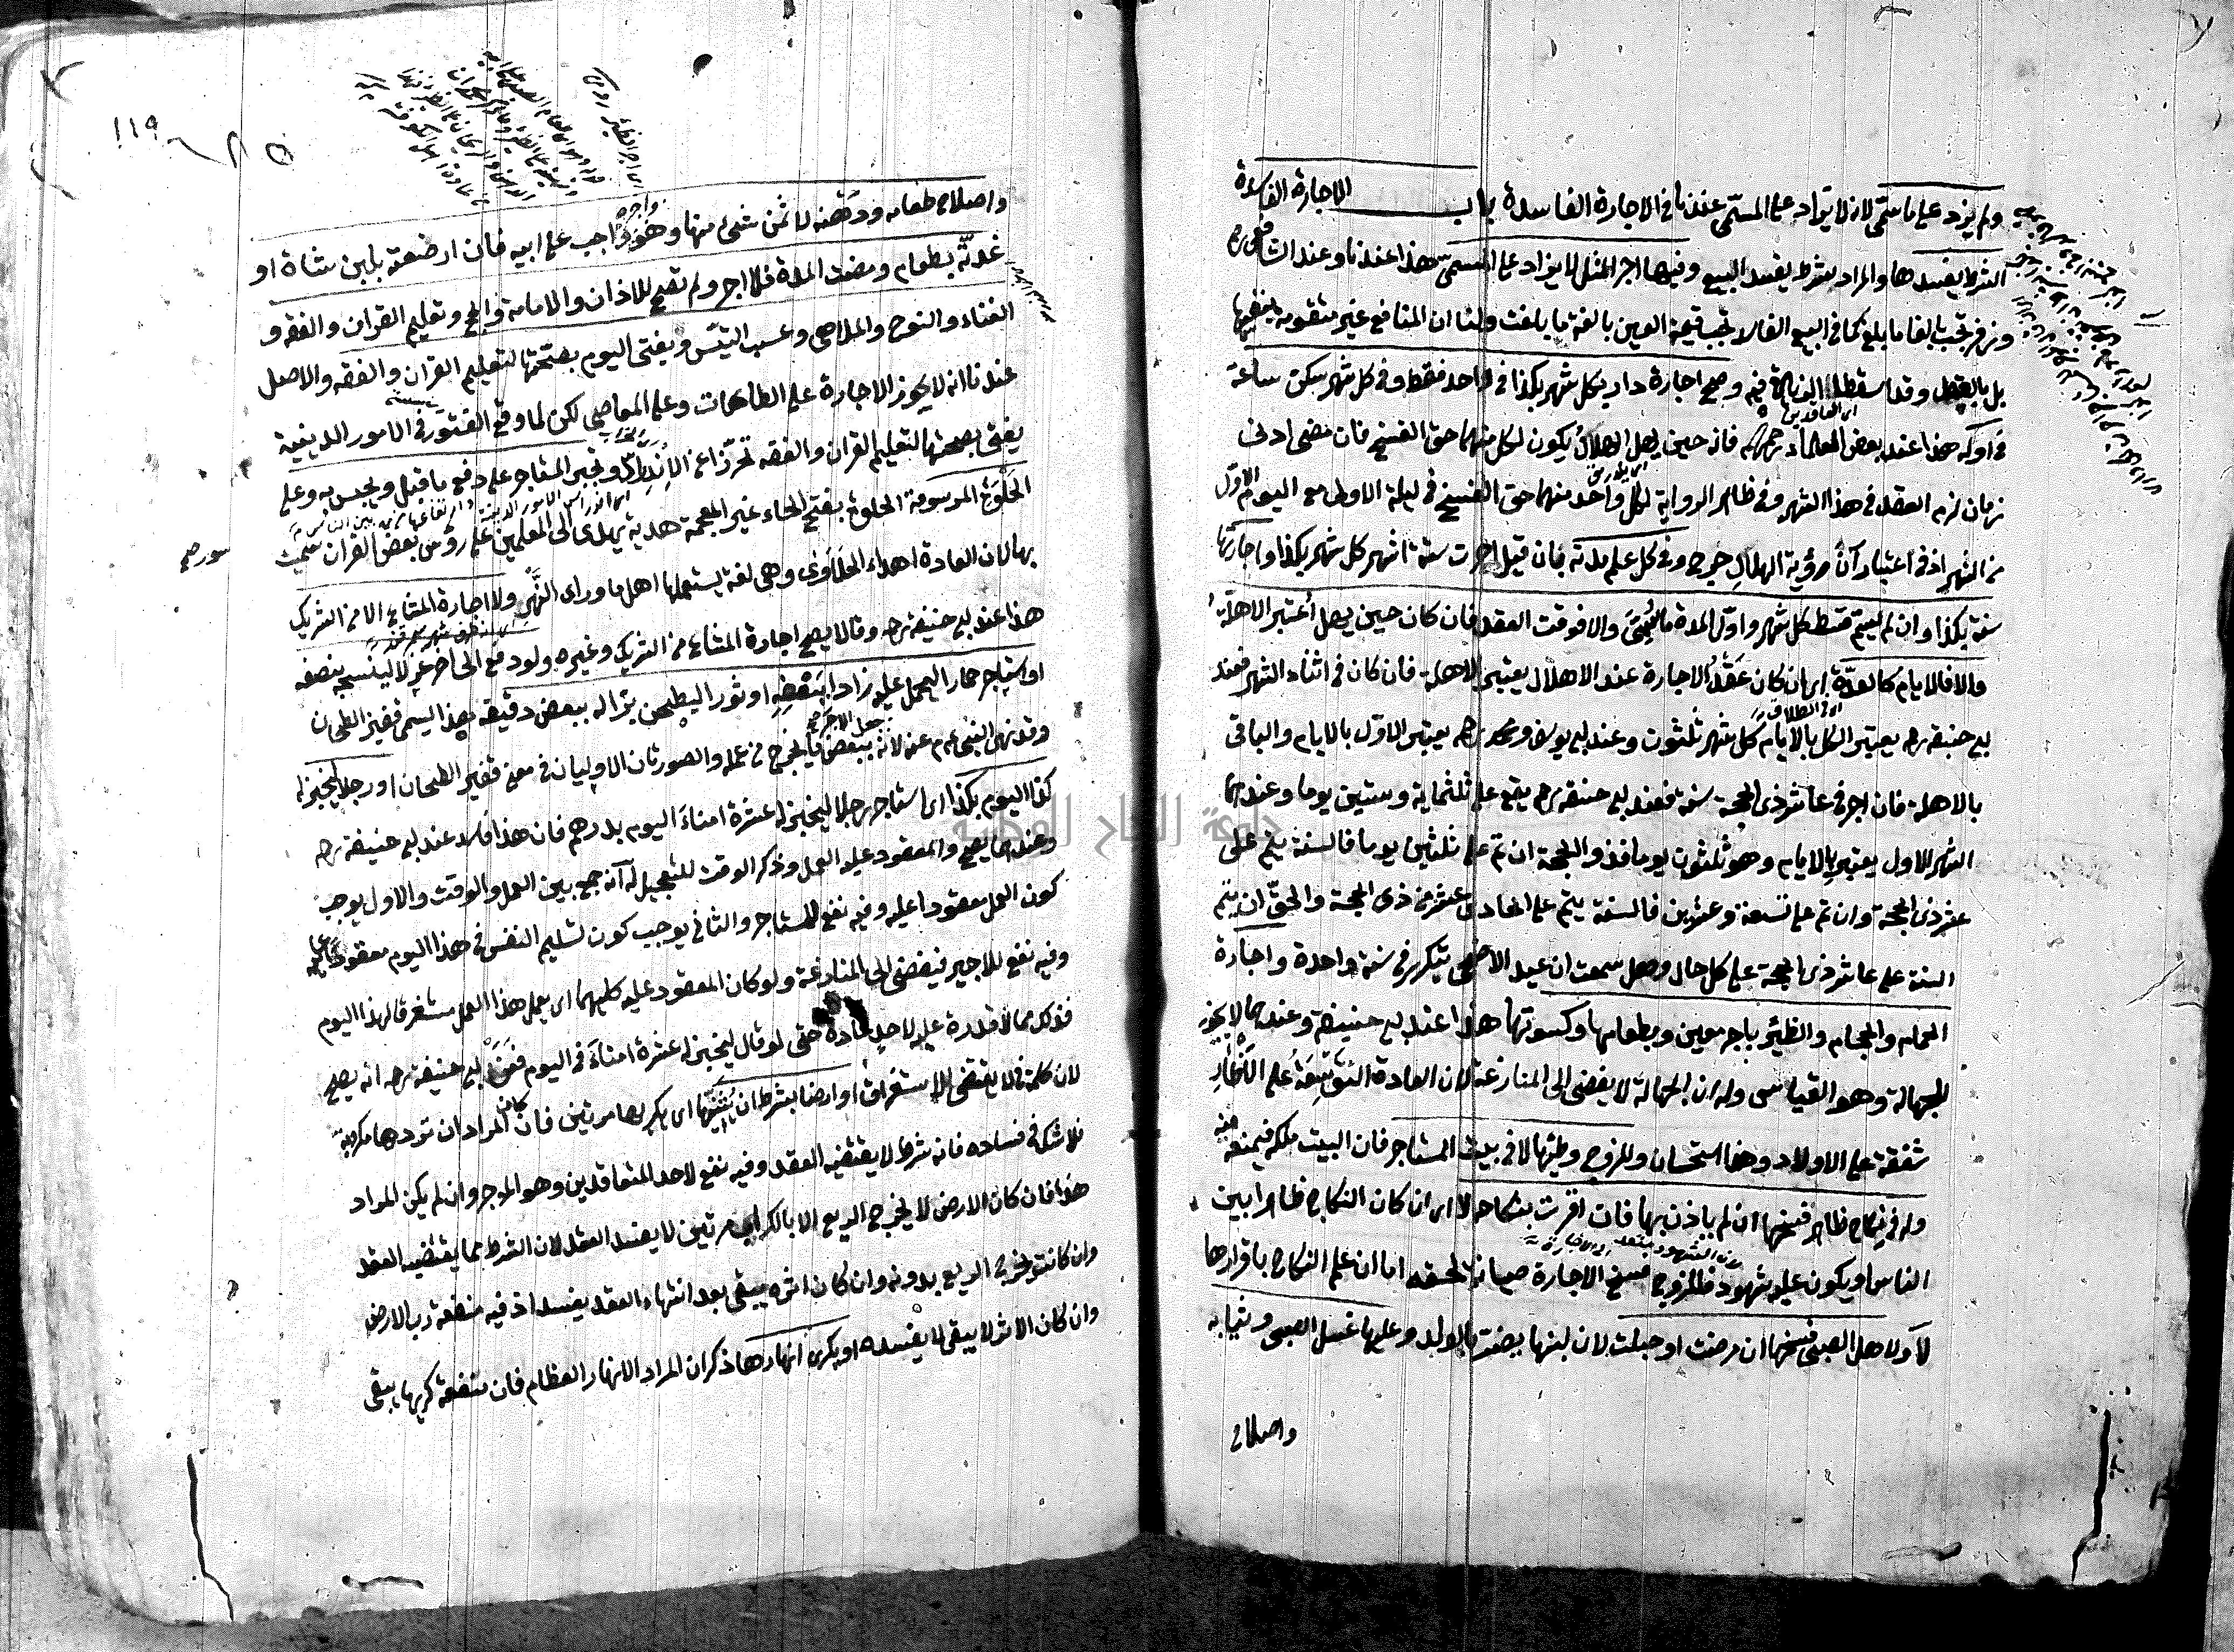 ولم يزد على ما سمى لانه لا يزاد على المسمى عندنا في الاجارة الفاسدة باب الاجارة الفاسدة
الشرط يفسدها والمراد شرط يفسد البيع وفيها اجر المثل لا يزاد على المسمى هذا عندنا وعند الشافعي رحمه
وزفر تجب بالغا ما بلغ كما في البيع الفا لا تجب قيمة العين بالغة ما بلغت ولنا ان المنافع غير متقومة بنفسها
بل بالعقد وقد اسقطا الزيادة فيه وصح اجارة دار كل شهر بكذا في واحد فقط وفي كل شهر سكن ساعة
في اوله هذا عند بعض العلماء رحمهم الله فانه حين يهل الهلال يكون لكل منهما حق الفسخ فان مضى ادنى
زمان لزم العقد في هذا الشهر وفي ظاهر الرواية لكل واحد منهما حق الفسخ في ليلة الاولى مع اليوم الاول
من الشهر اذ في اعتبار آن رؤية الهلال حرج وفي كل علم مدته بان قيل اجرت ستة اشهر كل شهر بكذا واجارتها
سنة بكذا وان لم يسم قسط كل شهر واول المدة ما سمى والا فوقت العقد فان كان حين يهل اعتبر الاهلة
والا فالايام كالعدة اي ان كان عقد الاجارة عند الاهلال يعتبر الاهلة فان كان في اثناء الشهر فعند
ابي حنيفة رحمه يعتبر الكل بالايام كل شهر ثلثون وعند ابي يوسف ومحمد رحمه يعتبر الاول بالايام والباقي
بالاهلة فان اجر في عاشر ذي الحجة سنة فعند ابي حنيفة رحمه يقع على ثلثماية وستين يوما وعندهما
الشهر الاول يعتبر بالايام وهو ثلثون يوما فذو الحجة ان تم على ثلثين يوما فالسنة يتم على
عشر ذي الحجة وان تم على تسعة وعشرين فالسنة يتم على الحادي عشر من ذي الحجة والحق ان يتم
السنة على عاشر ذي الحجة على كل حال وهل سمعت ان عيد الاضحى يتكرر في سنة واحدة واجارة
الحمام والحجام والظئر باجر معين وبطعامها وكسوتها هذا عند ابي حنيفة وعندهما لا يجوز
للجهالة وهو القياس وله ان الجهالة لا يفضي الى المنازعة لان العادة التوسعة على الاظآر
شفقة على الاولاد وهذا استحسان وللزوج وطئها لا في بيت المستاجر فان البيت ملكه فيمنعه منه
وله في نكاح ظاهر فسخها ان لم ياذن بها فان اقرت بنكاحه لا اي ان كان النكاح ظاهرا بين
الناس او يكون عليه شهود فللزوج فسخ الاجارة صيانة لحقه اما ان علم النكاح باقرارها
لا ولاهل الصبي فسخها ان مرضت او حبلت لان لبنها يضر بالولد وعليها غسل الصبي وثيابه
واصلاح
١١٩
واصلاح طعامه ودهنه لا ثمن شيء منها وهو واجره واجب على ابيه فان ارضعته بلبن شاة او
غذته بطعام ومضت المدة فلا اجر ولم تصح للاذان والامامة والحج وتعليم القران والفقه و
الغناء والنوح والملاهي وعسب التيس ويفتى اليوم بصحتها لتعليم القران والفقه والاصل
عندنا انه لا يجوز الاجارة على الطاعات وعلى المعاصي لكن لما وقع الفتور في الامور الدينية
يفتى بصحتها لتعليم القران والفقه تحرزا عن الاندراس ويجبر المستاجر على دفع ما قبل ويحبس به وعلى
الحلوة المرسومة الحلوة بفتح الحاء غير المعجمة هدية يهدى الى المعلمين على رؤس بعض القران سميت
بها لان العادة اهداء الحلاوى وهي لغة يستعملها اهل ما وراء النهر ولا اجارة المشاع الا من الشريك
هذا عند ابي حنيفة رحمه وقالا يصح اجارة المشاع من الشريك وغيره ولو دفع الى اخر غزلا لينسجه بنصفه
او استاجر حمارا ليحمل عليه زادا ببعضه او ثورا ليطحن برا له ببعض دقيقه هذا يسمى قفيز الطحان
وقد نهى النبي عم عنه لانه جعل الاجر ببعض ما يخرج من عمله والصورتان الاوليان في معنى قفيز الطحان او رجلا ليخبز له
كذا اليوم بكذا اي استاجر رجلا ليخبز له عشرة امناء اليوم بدرهم فان هذا فاسد عند ابي حنيفة رحمه
وعندهما يصح والمعقود عليه العمل وذكر الوقت للتعجيل له انه جمع بين العمل والوقت والاول يوجب
كون العمل معقودا عليه وفيه نفع للمستاجر والثاني يوجب كون تسليم النفس في هذا اليوم معقودا عليه
وفيه نفع للاجير فيفضي الى المنازعة ولو كان المعقود عليه كليهما اي يعمل هذا العمل مستغرقا لهذا اليوم
فذلك مما لا قدرة عليه لاحد عادة حتى لو قال ليخبز له عشرة امناء في اليوم فعن ابي حنيفة رحمه انه يصح
لان كلمة في لا يقتضي الاستغراق او ارضا بشرط ان يثنيها اي يكربها مرتين فان كان المراد ان تردها مكروبة
فلا شك في فساده فانه شرط لا يقتضيه العقد وفيه نفع لاحد المتعاقدين وهو الموجر وان لم يكن المراد
هذا فان كان الارض لا يخرج الريع الا بالكراب مرتين لا يفسد العقد لان الشرط مما يقتضيه العقد
وان كانت يخرج الريع بدونه وان كان اثره يبقى بعد انتهاء العقد يفسد اذ فيه منفعة رب الارض
وان كان الاثر لا يبقى لا يفسده او يكري انهارها ذكر ان المراد الانهار العظام فان منفعة كريها يبقى